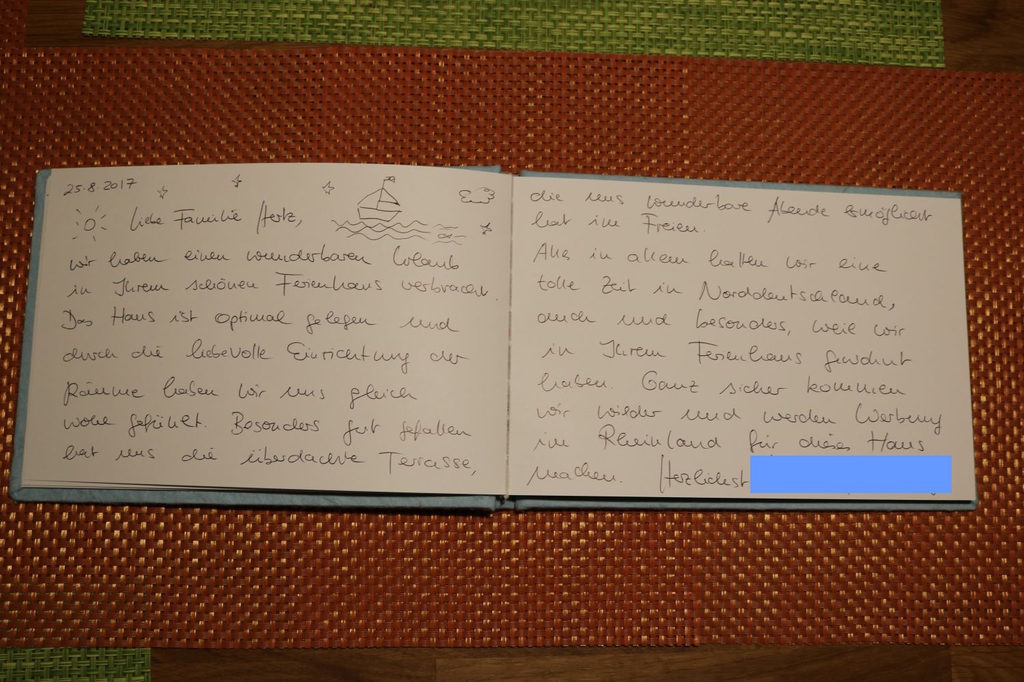 25.8.2017
Liebe Familie Hertz,
wir haben einen wunderbaren Urlaub
in Ihrem schönen Ferienhaus verbracht.
Das Haus ist optimal gelegen und
durch die liebevolle Einrichtung der
Räume haben wir uns gleich
wohl gefühlt. Besonders gut gefallen
hat uns die überdachte Terrasse,
die uns wunderbare Abende ermöglicht
hat im Freien.
Alles in allem hatten wir eine
tolle Zeit in Norddeutschland,
auch und besonders, weil wir
in Ihrem Ferienhaus gewohnt
haben. Ganz sicher kommen
wir wieder und werden Werbung
im Rheinland für dieses Haus
machen. Herzlichst